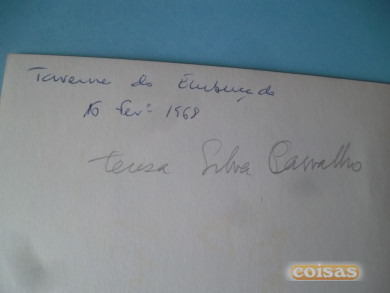 Taverna do Embuçado
10 fev.º 1968
Teresa Silva Carvalho
coisas